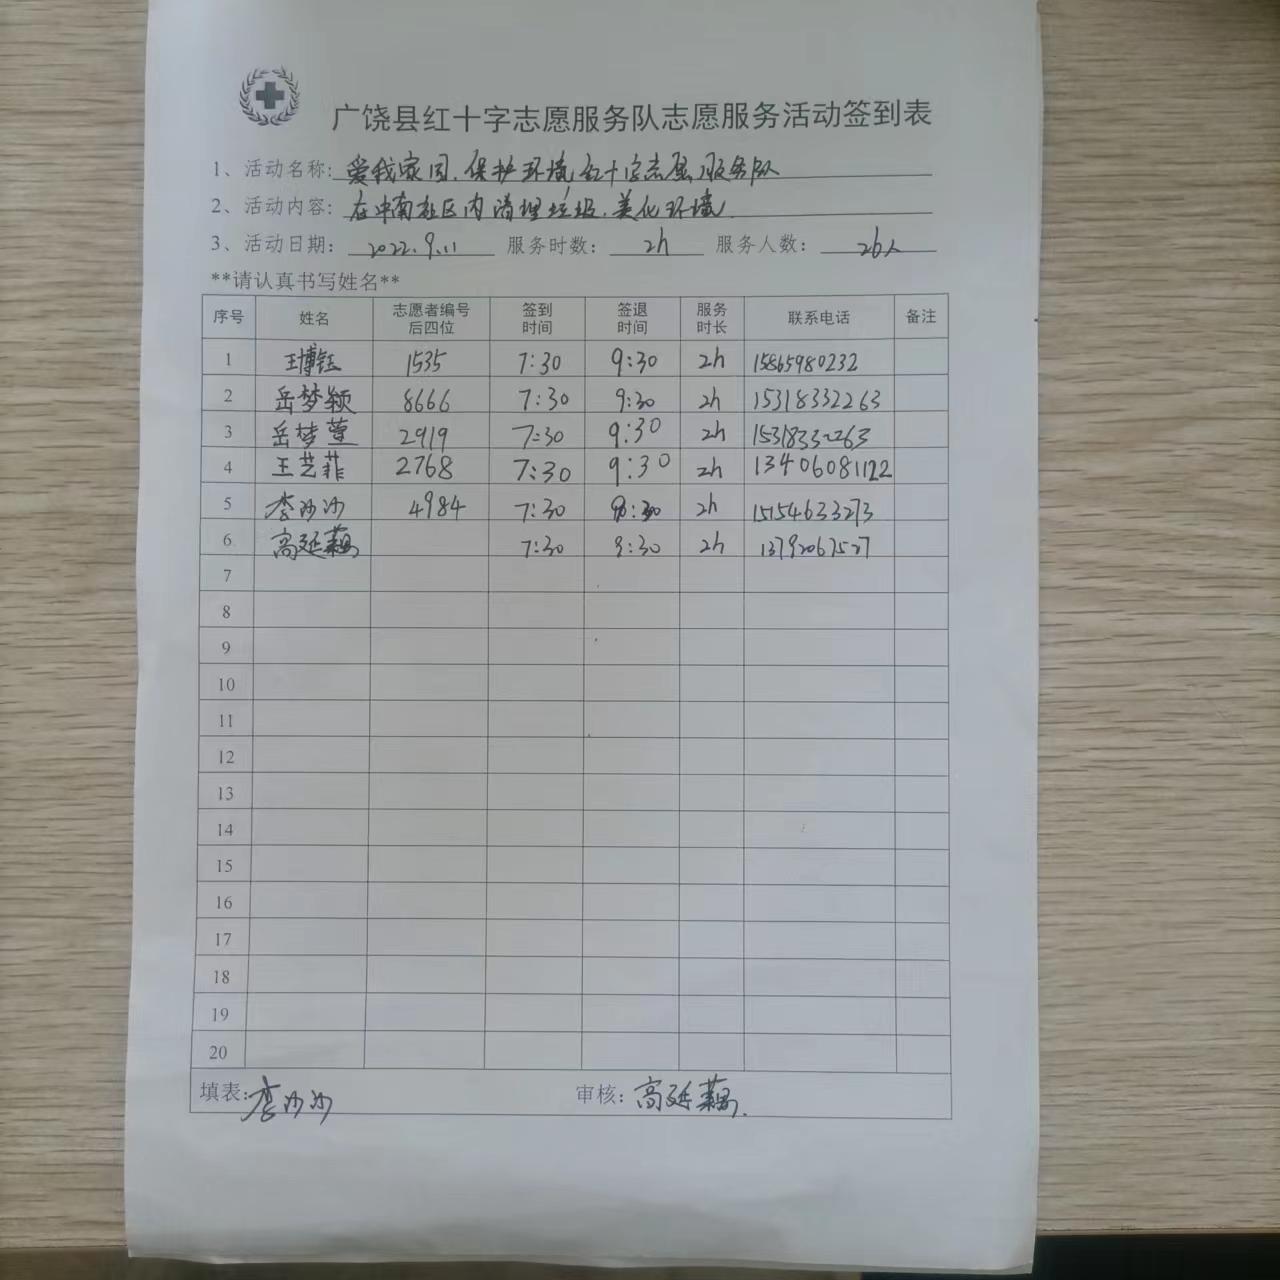 广饶县红十字志愿服务队志愿服务活动签到表
1、活动名称: 爱我家园.保护环境 红十字志愿服务队
2、活动内容: 在中南社区内清理垃圾.美化环境
3、活动日期: 2022.9.11 服务时数: 2h 服务人数: 26人
**请认真书写姓名**
序号 姓名 志愿者编号后四位 签到时间 签退时间 服务时长 联系电话 备注
1 王博钰 1535 7:30 9:30 2h 15865980232
2 岳梦颖 8666 7:30 9:30 2h 15318332263
3 岳梦萱 2919 7:30 9:30 2h 15318332263
4 王艺菲 2768 7:30 9:30 2h 13406081122
5 李沙沙 4984 7:30 9:30 2h 15154633273
6 高延 7:30 9:30 2h 13792067527
7
8
9
10
11
12
13
14
15
16
17
18
19
20
填表: 李沙沙 审核: 高延